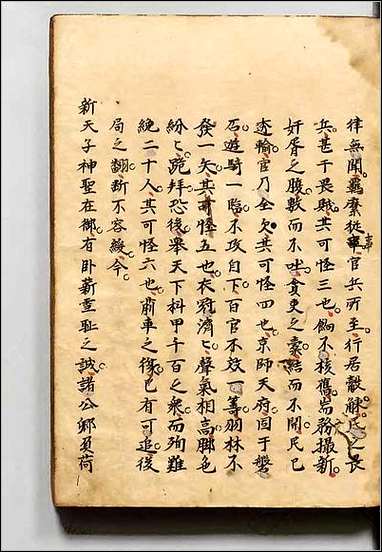 律無聞。羈縻從事。官兵所主。行居觳觫。民之畏
兵甚于畏賊。其可怪三也。餉不核舊。耑務撮新。
奸胥之腹數而不吐。貪吏之橐結而不開。民已
透輸官乃全欠。其可怪四也。京師天府固于磐
石。遊騎一臨。不攻自下。百官不效一籌。羽林不
發一矢。其可怪五也。衣冠濟〻聲氣相高。脚色
紛〻跪拜恐後。舉天下科甲千百之衆。而殉難
絶二十人。其可怪六也。前車之後。已有可追。後
局之翻。斷不容緩。今
新天子神聖在御。有卧薪雪恥之誠。諸公卿負荷